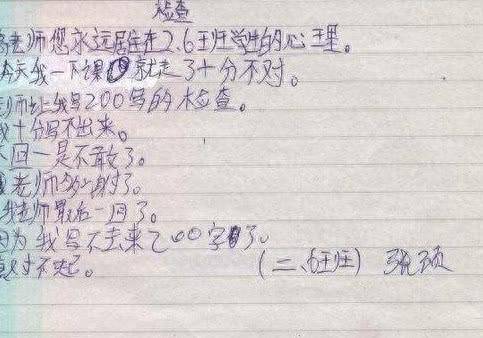 检查
老师您永远居住在2.6班学生的心里。
今天我一下课就走了十分不对。
老师让我写200写的检查。
我十分写不出来。
下回一是不敢了。
老师多谢了。
老师最后一回了。
因为我写不去来200字了。
真对不起。 (二、6班) 张